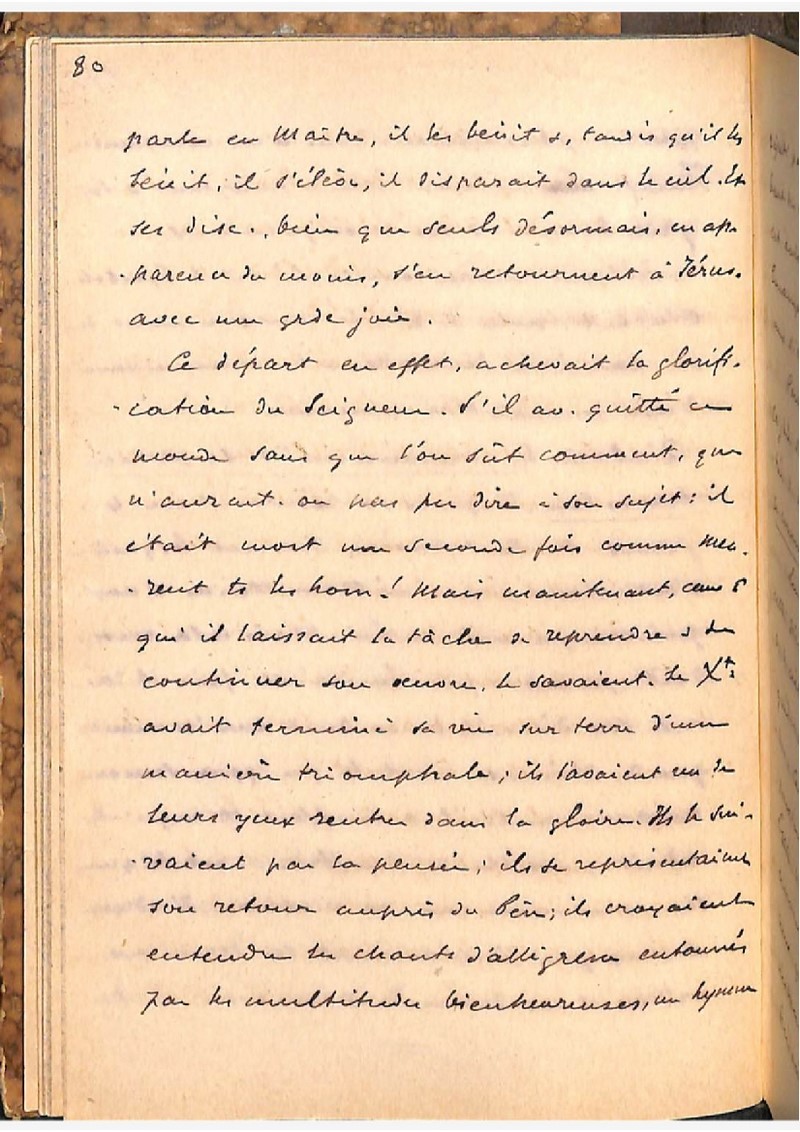 80
parle en Maître, il les bénit &, tandis qu'il les
bénit, il s'élève, il disparait dans le ciel. Et
ses disc., bien que seuls désormais, en ap-
-parence du moins, s'en retournent à Jérus.
avec une grde joie.
Ce départ en effet, achevait la glorifi-
-cation du Seigneur. S'il av. quitté ce
monde sans que l'on sût comment, que
n'aurait-on pas pu dire à son sujet: il
était mort une seconde fois comme meu-
-rent ts les hom.! Mais maintenant, ceux à
qui il laissait la tâche de reprendre & de
continuer son œuvre, le savaient. Le Xt
avait terminé sa vie sur terre d'une
manière triomphale; ils l'avaient vu de
leurs yeux rentrer dans la gloire. Ils le sui-
-vaient par la pensée; ils se représentaient
son retour auprès du Père; ils croyaient
entendre les chants d'allégresse entonnés
par les multitudes bienheureuses, un hymne